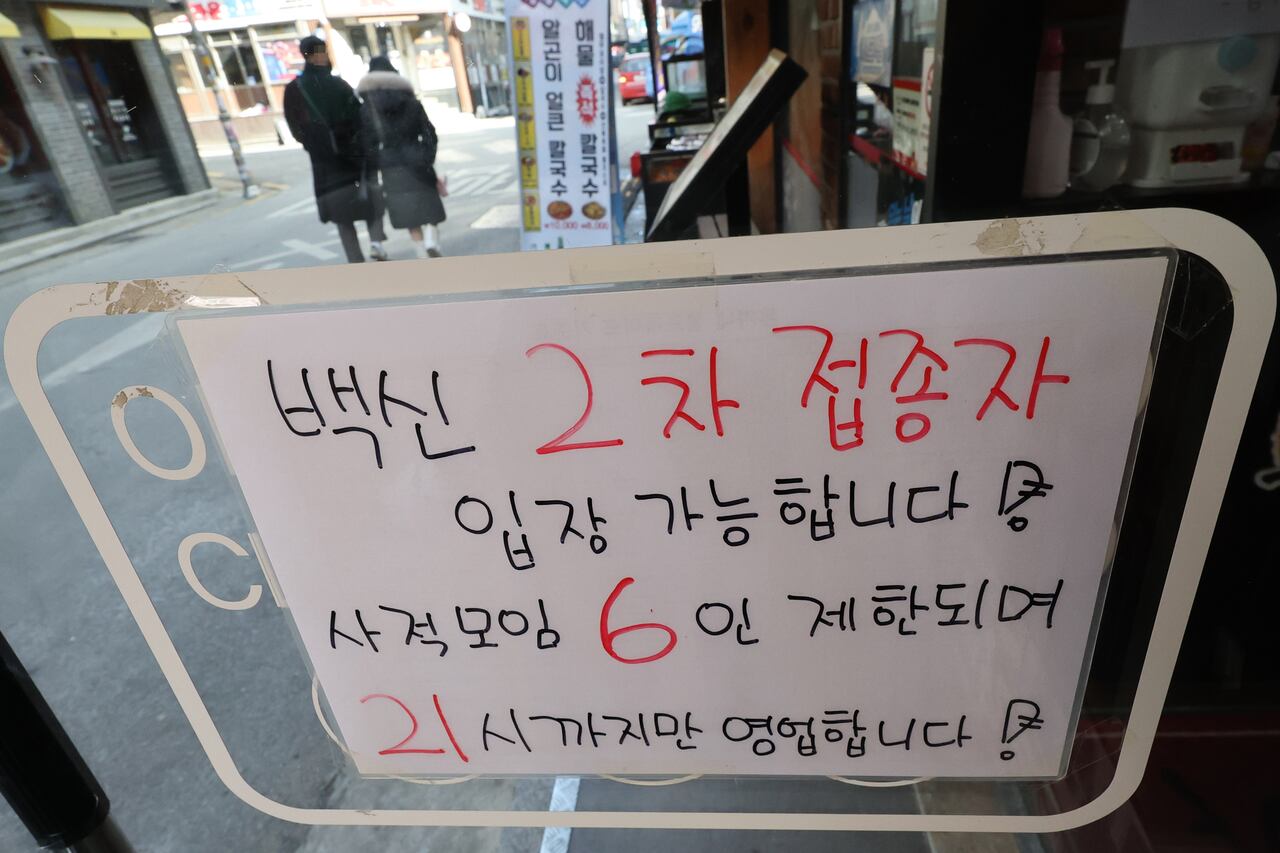 해물 칼국수
알곤이 얼큰 칼국수
₩10,000 ₩8,000
백신 2차 접종자
입장 가능합니다!
사적모임 6인 제한되며
21시까지만 영업합니다!